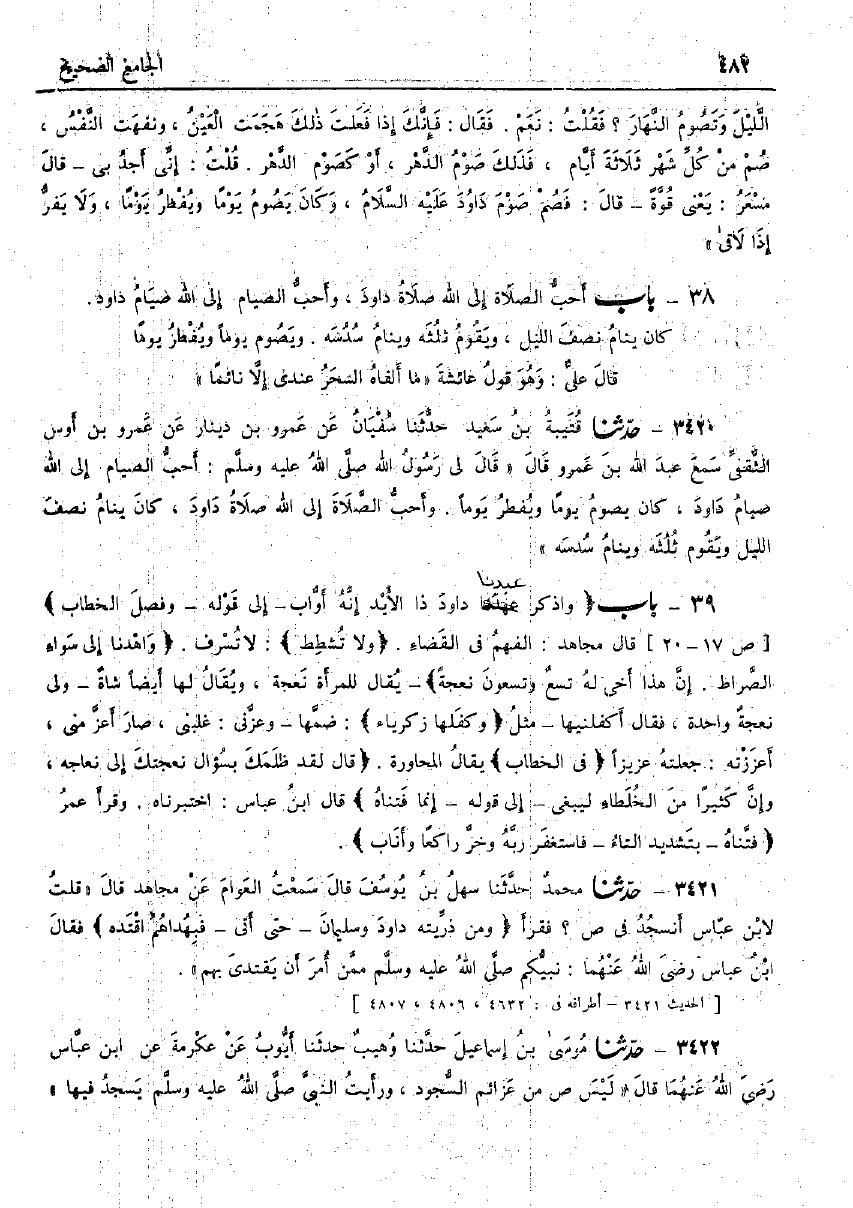 ٤٨٢ الجامع الصحيح
الَّليْلَ وَتَصُومُ النَّهارَ ؟ فَقُلْتُ : نَعَمْ . فَقَال : فَإِنَّكَ إِذا فَعَلتَ ذٰلكَ هَجَمَت الْعَيْنُ ، ونفهَت النَّفْسُ ،
صُمْ منْ كُلِّ شَهْر ثَلَاثَةَ أَيَّام ، فَذٰلكَ صَوْمُ الدَّهْر ، أَوْ كَصَوْم الدَّهْر . قُلْتُ : إِنِّى أَجدُ بى – قالَ
مسْعَرٌ : يَعْنى قُوَّةً – قالَ : فَصُمْ صَوْمَ دَاوُدَ عَلَيْه السَّلَامُ ، وَكَانَ يَصُومُ يَوْمًا ويُفْطرُ يَوْمًا ، وَلَا يَفرُّ
إِذَا لَاقىٰ »
٣٨ – باب أَحبُّ الصَّلَاة إلى الله صَلَاةُ داودَ ، وأَحبُّ الصيام إلى الله صيَامُ داودَ .
كان ينامُ نصفَ الليل ، ويَقُومُ ثلثَه وينامُ سُدُسَه . ويَصُوم يوماً ويُفْطرُ يومًا
قالَ علىٌّ : وَهُوَ قولُ عائشةَ « ما ألفاهُ السّحَرُ عندى إلَّا نائمًا »
٣٤٢٠ – حدّثنا قُتَيبةُ بنُ سَعيد حدَّثَنا سُفْيَانُ عَن عَمرو بن دينار عَن عَمرو بن أَوس
الثَّقفىِّ سَمعَ عبدَ الله بنَ عَمرو قالَ « قَالَ لى رَسُولُ الله صلَّى اللهُ عليه وسلَّم : أَحبُّ الصيام إلى الله
صيامُ دَاودَ ، كان يصومُ يومًا ويُفطرُ يَوماً . وأَحبُّ الصَّلَاةَ إلى الله صلاةُ دَاودَ ، كانَ ينامُ نصفَ
الليل ويَقُوم ثُلثَه وينامُ سُدسَه »
عبدنا
٣٩ – باب ﴿ واذكر داودَ ذا الأَيْد إنَّهُ أَوَّاب – إلى قَوْله – وفصلَ الخطاب ﴾
[ ص ١٧ – ٢٠ ] قال مجاهد : الفهمُ فى القَضَاء . ﴿ولا تُشطِط ﴾ : لا تُسْرف . ﴿ وَاهْدنا إلى سَواء
الصِّراط . إنَّ هذا أَخى لهُ تسعٌ وتسعونَ نعجةً﴾ – يُقال للمرأة نَعجة ، ويُقَالُ لها أَيضاً شاةٌ – ولى
نعجةٌ واحدة ، فقال أَكفلنيها – مثلُ ﴿ وكفَلها زكرياء ﴾ : ضمَّها – وعزَّنى : غلبنى ، صارَ أَعزَّ منى ،
أَعزَزْته : جعلتهُ عزيزاً ﴿ فى الخطاب ﴾ يقالُ المحاورة . ﴿ قال لقد ظلَمَكَ بسُؤال نعجتكَ إلى نعاجه ،
وإنَّ كَثيرًا منَ الخُلَطاءِ ليبغى – إلى قوله – إنما فَتناهُ ﴾ قال ابنُ عباس : اختبرناه . وقرأَ عمرُ
﴿ فتَّناهُ – بتَشديد التاءُ – فاستغفَر ربَّهُ وخرَّ راكعًا وأَناب ﴾ .
٣٤٢١ – حدّثنا محمدٌ حدَّثَنا سهلُ بنُ يُوسُفَ قالَ سَمعْتُ العَوامَ عَنْ مجاهد قالَ « قلتُ
لابْن عبّاس أَنسجُدُ فى ص ؟ فقرأَ ﴿ ومن ذرِّيته داودَ وسليمانَ – حتى أَتى – فَبهُداهُمُ اقْتَده ﴾ فقالَ
ابْنُ عباس رضىَ اللهُ عَنْهُما : نبيُّكم صلَّى اللهُ عليه وسلَّم ممَّن أُمرَ أَن يَقتدىَ بهم » .
[ الحديث ٣٤٢١ – أطرافه فى : ٤٦٣٢ ، ٤٨٠٦ ، ٤٨٠٧ ]
٣٤٢٢ – حدّثنا مُوسىٰ بنُ إسماعيلَ حدَّثَنا وُهيبٌ حدثَنا أَيُّوبُ عَنْ عكْرمةَ عن ابن عبَّاس
رَضىَ اللهُ عَنهُمَا قالَ « لَيْسَ ص من عَزائم السُّجود ، ورأَيتُ النبىَّ صلَّى اللهُ عليه وسلَّم يَسجدُ فيها »